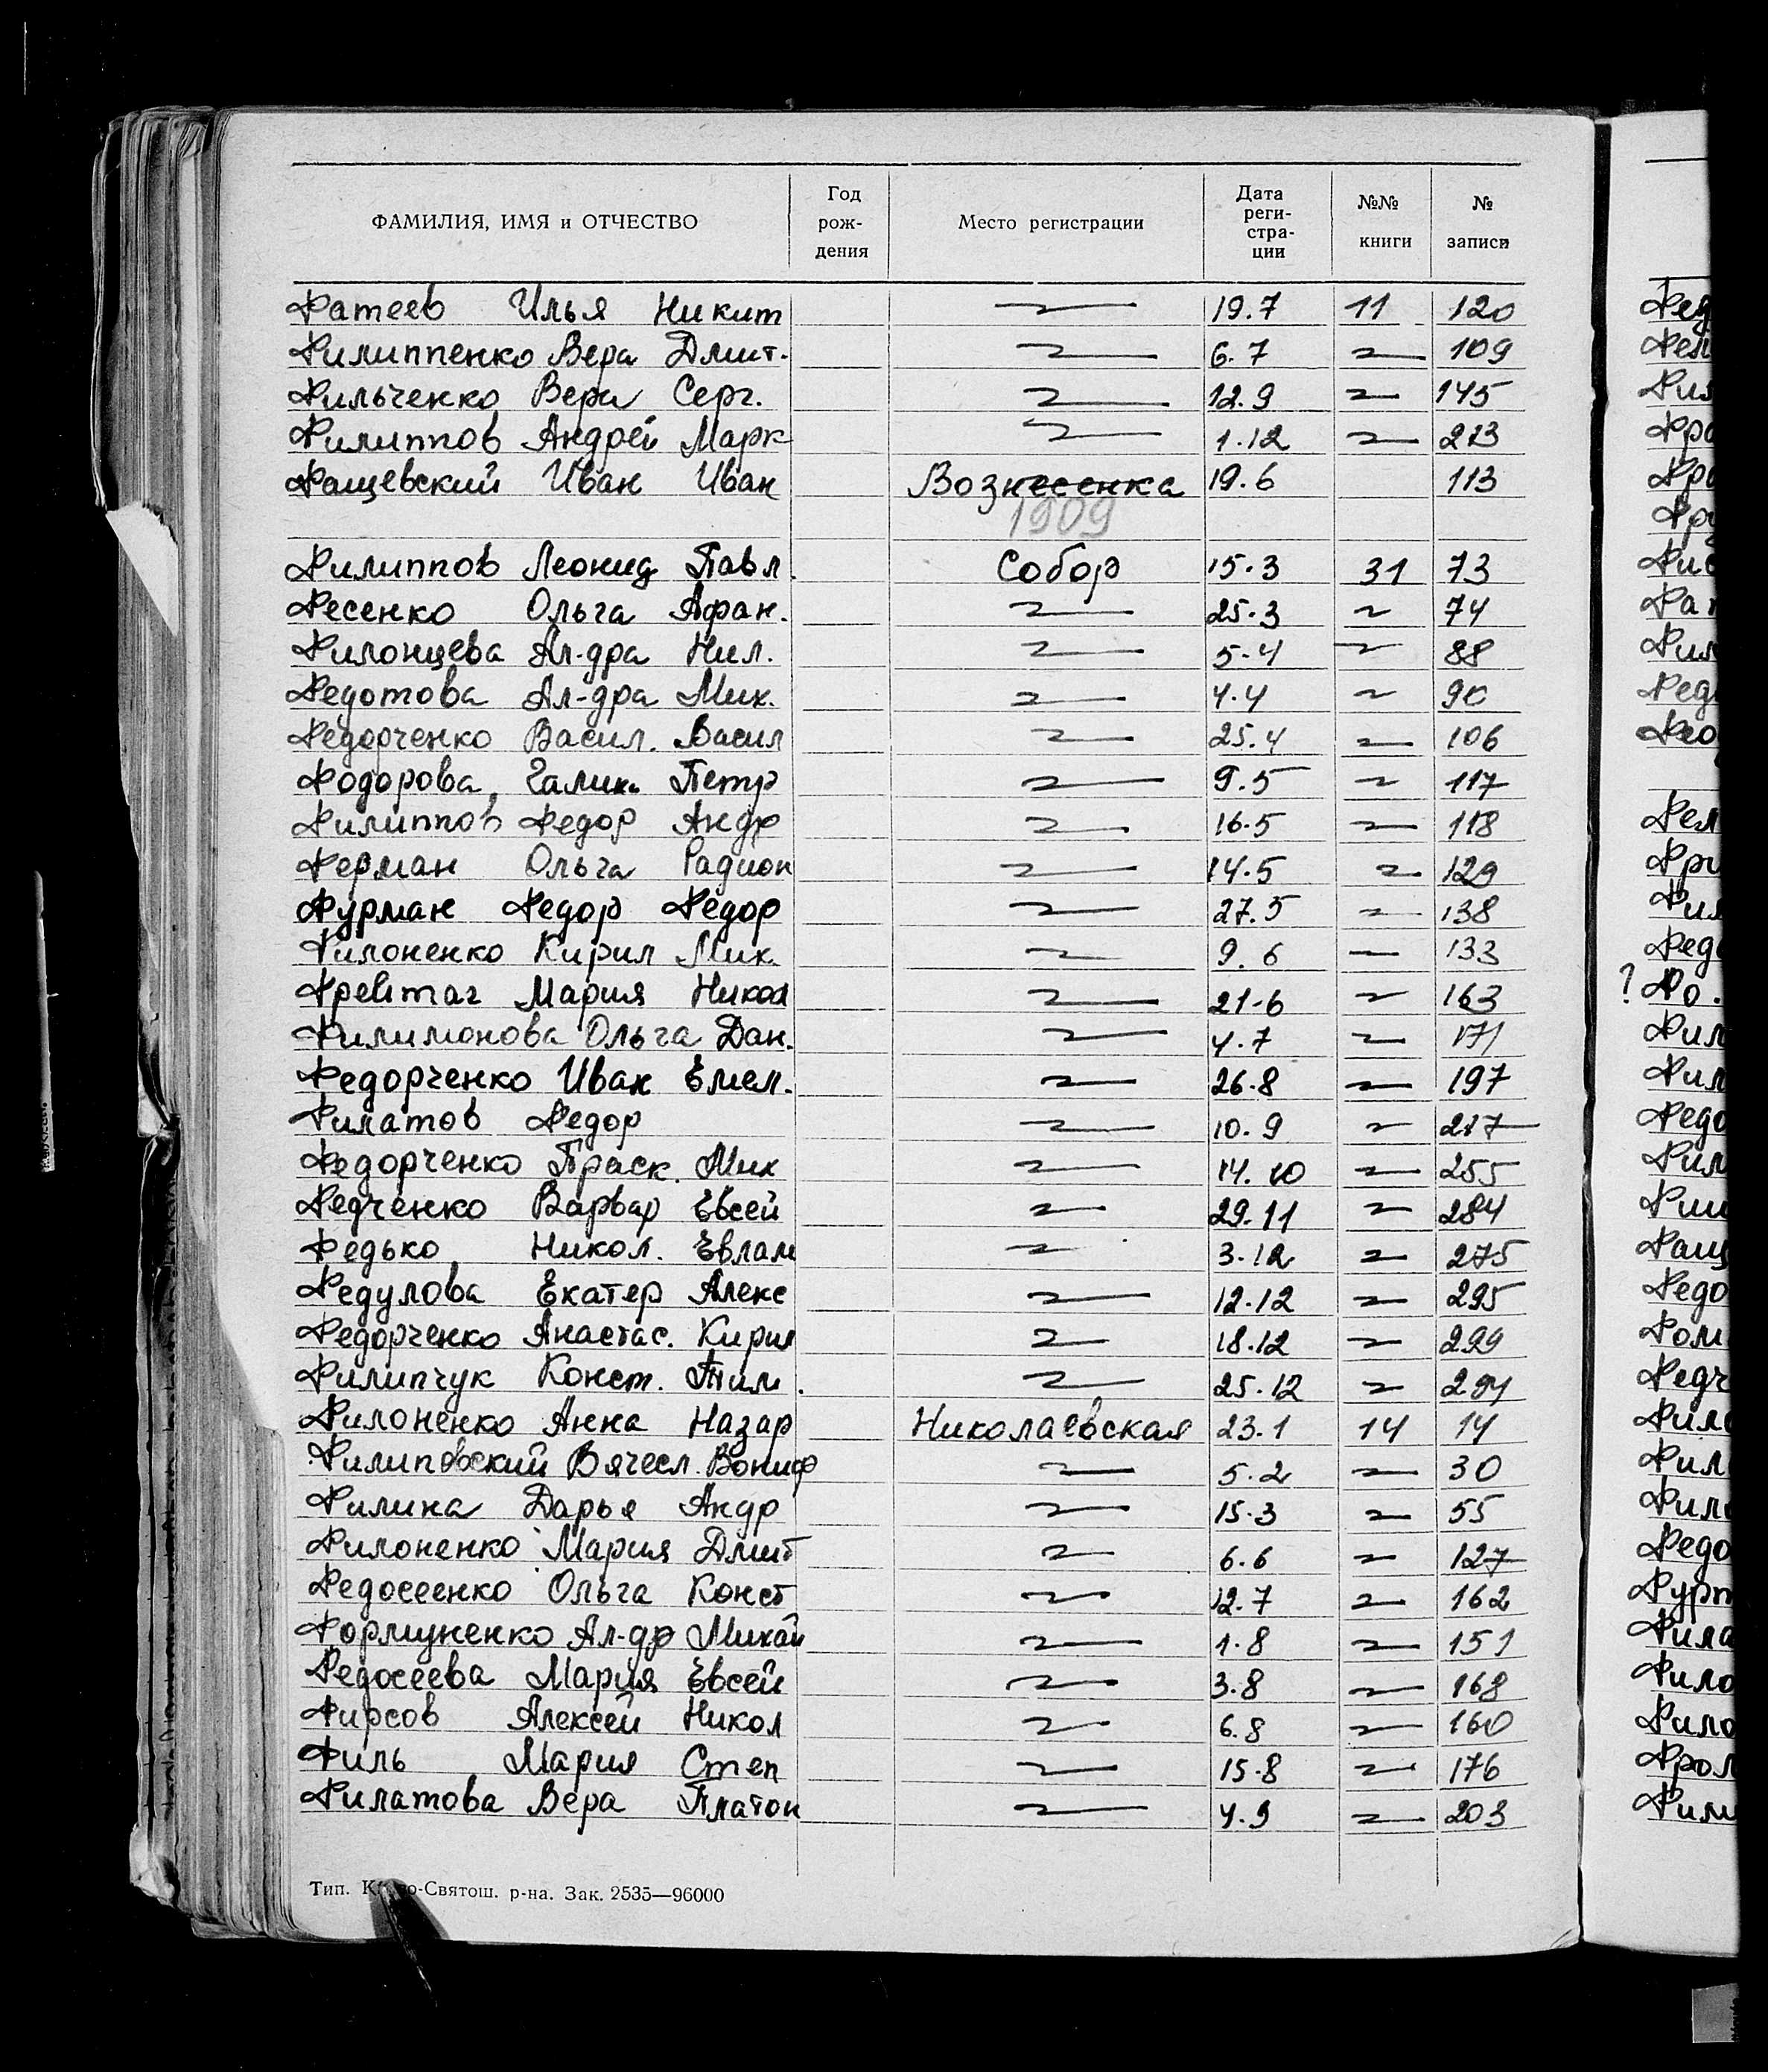 ФАМИЛИЯ, ИМЯ и ОТЧЕСТВО Год рож- дения Место регистрации Дата реги- стра- ции №№ книги № записи
Фатеев Илья Никит 〃 19.7 11 120
Филиппенко Вера Дмит. 〃 6.7 〃 109
Фильченко Вера Серг. 〃 12.9 〃 145
Филиппов Андрей Марк 〃 1.12 〃 213
Фащевский Иван Иван Вознесенка 19.6 113
1909
Филиппов Леонид Павл. Собор 15.3 31 73
Фесенко Ольга Афан. 〃 25.3 〃 74
Филонцева Ал-дра Нил. 〃 5.4 〃 88
Федотова Ал-дра Мих. 〃 4.4 〃 90
Федорченко Васил. Васил 〃 25.4 〃 106
Фодорова Галин. Петр 〃 9.5 〃 117
Филиппов Федор Андр 〃 16.5 〃 118
Ферман Ольга Радион 〃 14.5 〃 129
Фурман Федор Федор 〃 27.5 〃 138
Филоненко Кирил Мих. 〃 9.6 〃 133
Фрейтаг Мария Никол 〃 21.6 〃 163
Филимонова Ольга Дан. 〃 4.7 〃 171
Федорченко Иван Емел. 〃 26.8 〃 197
Филатов Федор 〃 10.9 〃 217
Федорченко Праск. Мих 〃 14.10 〃 255
Федченко Варвар Евсей 〃 29.11 〃 284
Федько Никол. Евлам 〃 3.12 〃 275
Федулова Екатер Алекс 〃 12.12 〃 295
Федорченко Анастас. Кирил 〃 18.12 〃 299
Филипчук Конст. Тим. 〃 25.12 〃
Филоненко Анна Назар Николаевская 23.1 14 14
Филиповский Вячесл. Вониф 〃 5.2 〃 30
Филина Дарья Андр 〃 15.3 〃 55
Филоненко Мария Дмит 〃 6.6 〃 127
Федосеенко Ольга Конст 〃 12.7 〃 162
Формуненко Ал-др Михай 〃 1.8 〃 151
Федосеева Мария Евсей 〃 3.8 〃 168
Фирсов Алексей Никол 〃 6.8 〃 160
Филь Мария Степ 〃 15.8 〃 176
Филатова Вера Платон 〃 4.9 〃 203
Тип. Святош. р-на. Зак. 2535—96000